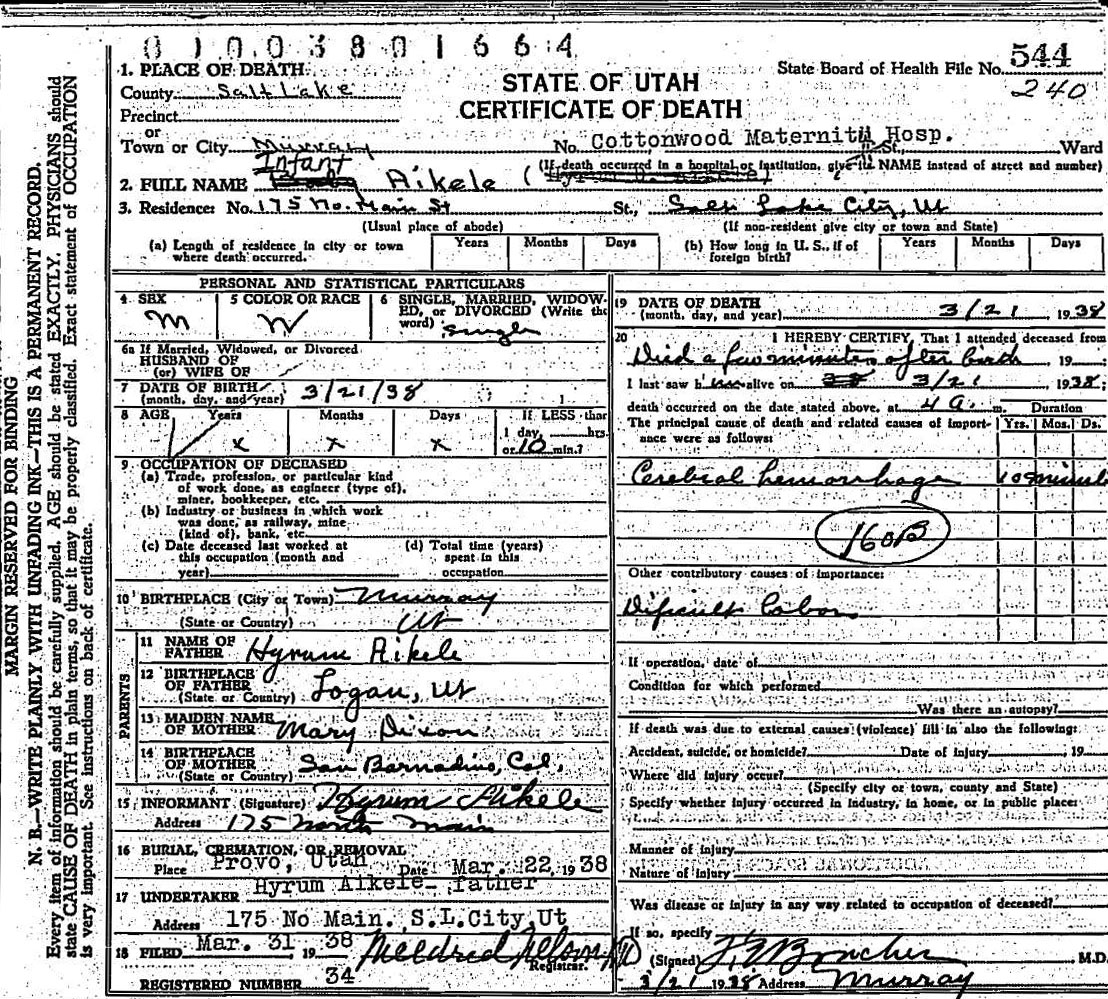 0 1 0 0 3 8 0 1 6 6 4
1. PLACE OF DEATH
County Salt Lake
Precinct
or
Town or City Murray
STATE OF UTAH
CERTIFICATE OF DEATH
State Board of Health File No. 544
240
No. Cottonwood Maternity Hosp. St., Ward
(If death occurred in a hospital or institution, give its NAME instead of street and number)
Infant
2. FULL NAME Aikele (
3. Residence: No. 175 No. Main St St., Salt Lake City, Ut
(Usual place of abode) (If non-resident give city or town and State)
(a) Length of residence in city or town where death occurred. Years Months Days
(b) How long in U. S., if of foreign birth? Years Months Days
PERSONAL AND STATISTICAL PARTICULARS
4 SEX M
5 COLOR OR RACE W
6 SINGLE, MARRIED, WIDOWED, or DIVORCED (Write the word) Single
6a If Married, Widowed, or Divorced
HUSBAND OF
(or) WIFE OF
7 DATE OF BIRTH
(month, day, and year) 3/21/38
8 AGE Years Months Days If LESS than
x x x 1 day, hrs.
or 10 min.?
9 OCCUPATION OF DECEASED
(a) Trade, profession, or particular kind
of work done, as engineer (type of),
miner, bookkeeper, etc.
(b) Industry or business in which work
was done, as railway, mine
(kind of), bank, etc.
(c) Date deceased last worked at
this occupation (month and
year)
(d) Total time (years)
spent in this
occupation
10 BIRTHPLACE (City or Town) Murray
(State or Country) Ut
PARENTS
11 NAME OF
FATHER Hyrum Aikele
12 BIRTHPLACE
OF FATHER
(State or Country) Logan, Ut
13 MAIDEN NAME
OF MOTHER Mary Dixon
14 BIRTHPLACE
OF MOTHER
(State or Country) San Barnadino, Cal.
15 INFORMANT (Signature) Hyrum Aikele
Address 175 North Main
16 BURIAL, CREMATION, OR REMOVAL
Place Provo, Utah Date Mar. 22, 1938
17 UNDERTAKER Hyrum Aikele- father
Address 175 No Main. S.L.City,Ut
18 FILED Mar. 31 1938
Registrar.
REGISTERED NUMBER 34
19 DATE OF DEATH
(month, day, and year) 3/21 1938
20 I HEREBY CERTIFY, That I attended deceased from
Died a few minutes after birth 19
I last saw him alive on 3/21 1938
death occurred on the date stated above, at 4 a. m.
Duration
The principal cause of death and related causes of importance were as follows: Yrs. Mos. Ds.
Cerebral hemorrhage 10 minutes
160B
Other contributory causes of importance:
Dificult labor
If operation, date of
Condition for which performed
Was there an autopsy?
If death was due to external causes (violence) fill in also the following:
Accident, suicide, or homicide? Date of injury 19
Where did injury occur?
(Specify city or town, county and State)
Specify whether injury occurred in industry, in home, or in public place:
Manner of injury
Nature of injury
Was disease or injury in any way related to occupation of deceased?
If so, specify
(Signed) M.D.
3/21 1938 Address Murray
MARGIN RESERVED FOR BINDING
N. B.—WRITE PLAINLY WITH UNFADING INK—THIS IS A PERMANENT RECORD.
Every item of information should be carefully supplied. AGE should be stated EXACTLY. PHYSICIANS should
state CAUSE OF DEATH in plain terms, so that it may be properly classified. Exact statement of OCCUPATION
is very important. See instructions on back of certificate.